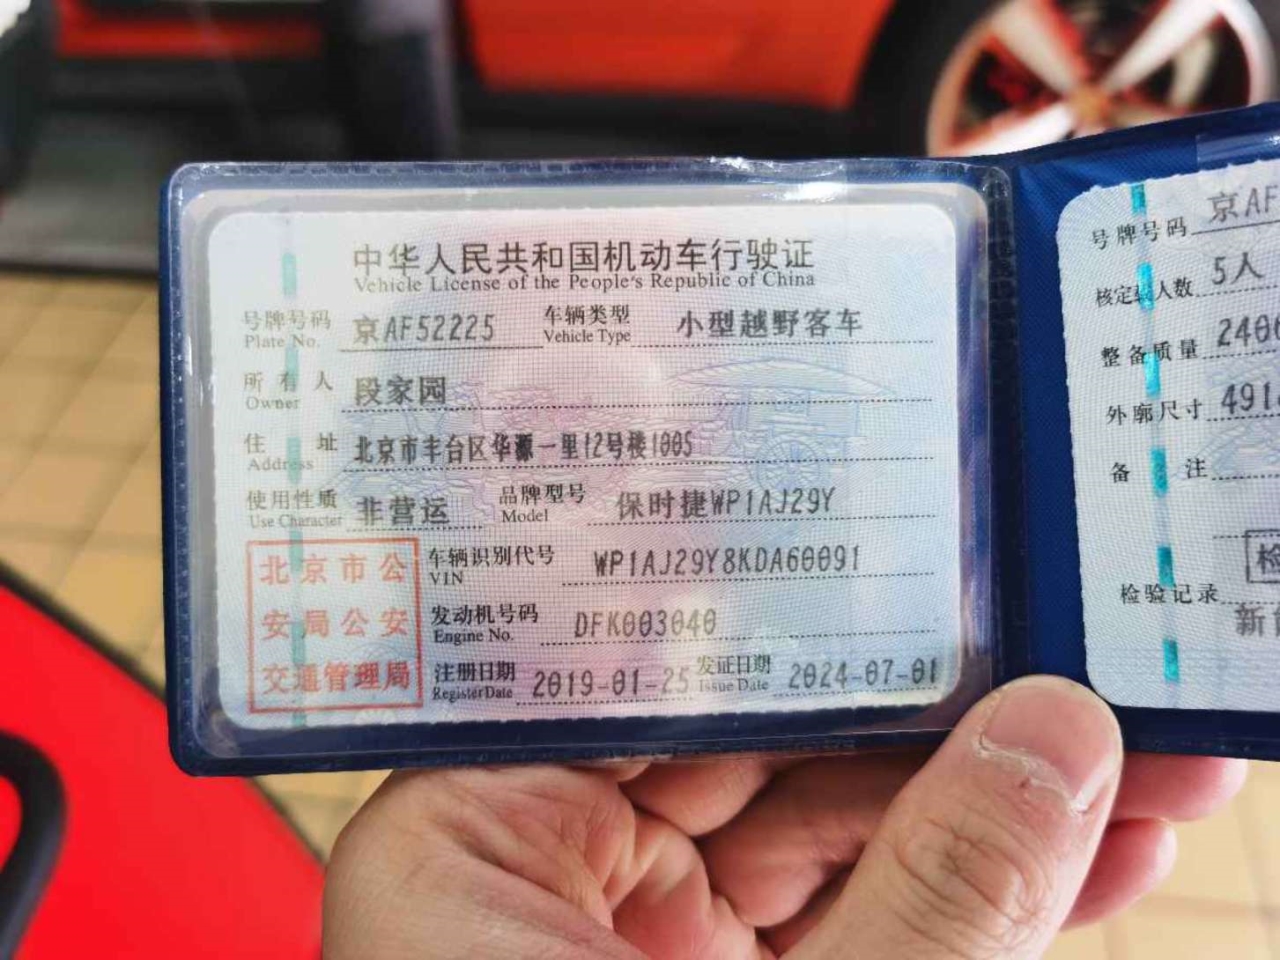 中华人民共和国机动车行驶证
Vehicle License of the People's Republic of China
号牌号码 京AF52225 车辆类型 小型越野客车
Plate No. Vehicle Type
所有人 段家园
Owner
住址 北京市丰台区华源一里12号楼1005
Address
使用性质 非营运 品牌型号 保时捷WP1AJ29Y
Use Character Model
车辆识别代号 WP1AJ29Y8KDA60091
VIN
发动机号码 DFK003040
Engine No.
注册日期 2019-01-25 发证日期 2024-07-01
Register Date Issue Date
北京市公
安局公安
交通管理局
号牌号码 京AF
核定载人数 5人
整备质量 240
外廓尺寸 491
备注
检
检验记录
新